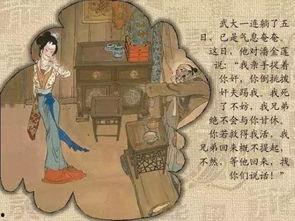 武大一连躺了五
日，已是气息奄奄。
这日，他对潘金莲
说：“我亲手捉着
你奸，你倒挑拨
奸夫踢我，我死
了不妨，我兄弟
绝不会与你甘休，
你若救得我活，我
兄弟回来概不提起，
不然，等他回来，找
你们说话！”